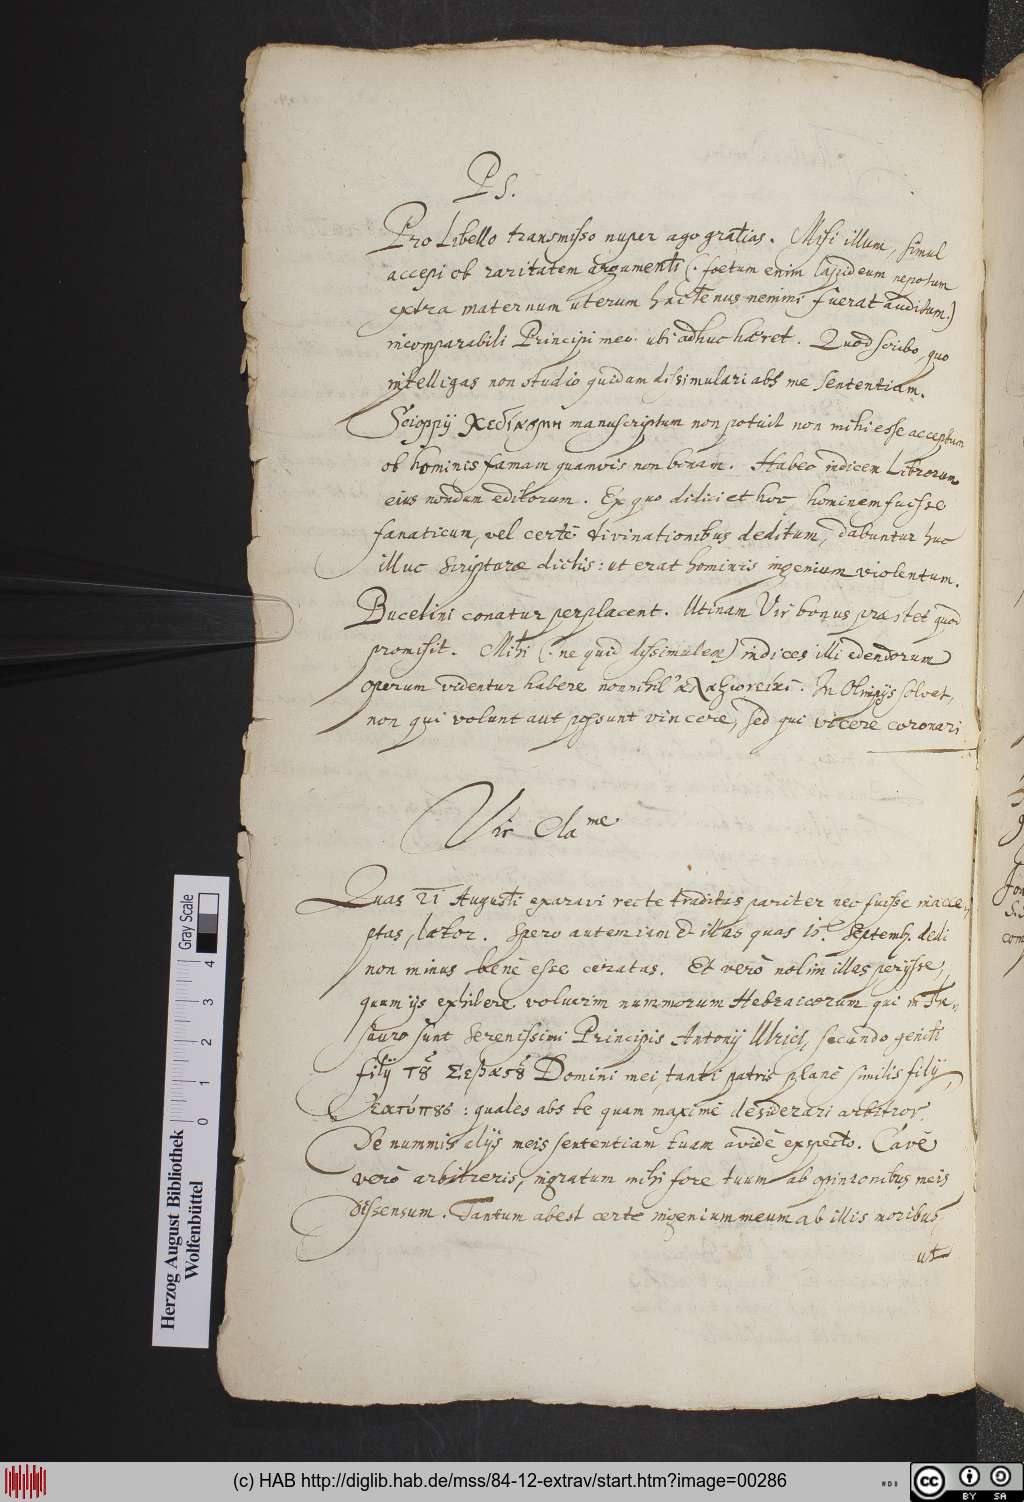 PS.
Pro Libello transmisso nuper ago gratias. Misi illum, simul
accepi ob raritatem argumenti (. foetum enim lapideum nepotum
extra maternum uterum hactenus nemini fuerat auditum.)
incomparabili Principi meo. ubi adhuc haeret. Quod scribo, quo
intelligas non studio quidam dissimulari abs me sententiam.
Scioppij manuscriptum non potuit non mihi esse acceptum
ob hominis famam quamvis non bonam. Habeo indicem Librorum
eius nondum editorum. Ex quo didici et hoc, hominem fuisse
fanaticum, vel certè divinationibus deditum, dabuntur huc
illuc Scripturae dictis: ut erat hominis ingenium violentum.
Bucelini conatur perplacent. Utinam Vir bonus praestet quod
promisit. Mihi (. ne quid dissimulem) indices illi edendorum
operum videntur habere nonnihil. In Olimpijs solvet,
non qui volunt aut possunt vincere, sed qui vicere coronari
Vir Cla me
Quas 21 Augusti exaravi recte traditas pariter nec fuisse inacce-
ptas, laetor. Spero autem iam et illas quas 15. Septemb. dedi
non minus benè esse curatas. Et verò nolim illas perijsse,
quum ijs exhibere voluerim nummorum Hebraicorum qui in The-
sauro sunt Serenissimi Principis Antonij Ulrici, secundo geniti
filij τȣ͂ Σεβαστȣ͂ Domini mei, tanti patris planè similis filij,
ἐκτύπȣς: quales abs te quam maximè desiderari arbitror.
De nummis alijs meis sententiam tuam avidè expecto. Cavè
verò arbitreris, ingratum mihi fore tuum ab opinionibus meis
dissensum. Tantum abest certè ingenium meum ab illis moribus,
ut
Herzog August Bibliothek
Wolfenbüttel
Gray Scale
0 1 2 3 4
(c) HAB http://diglib.hab.de/mss/84-12-extrav/start.htm?image=00286
WDB
cc BY SA